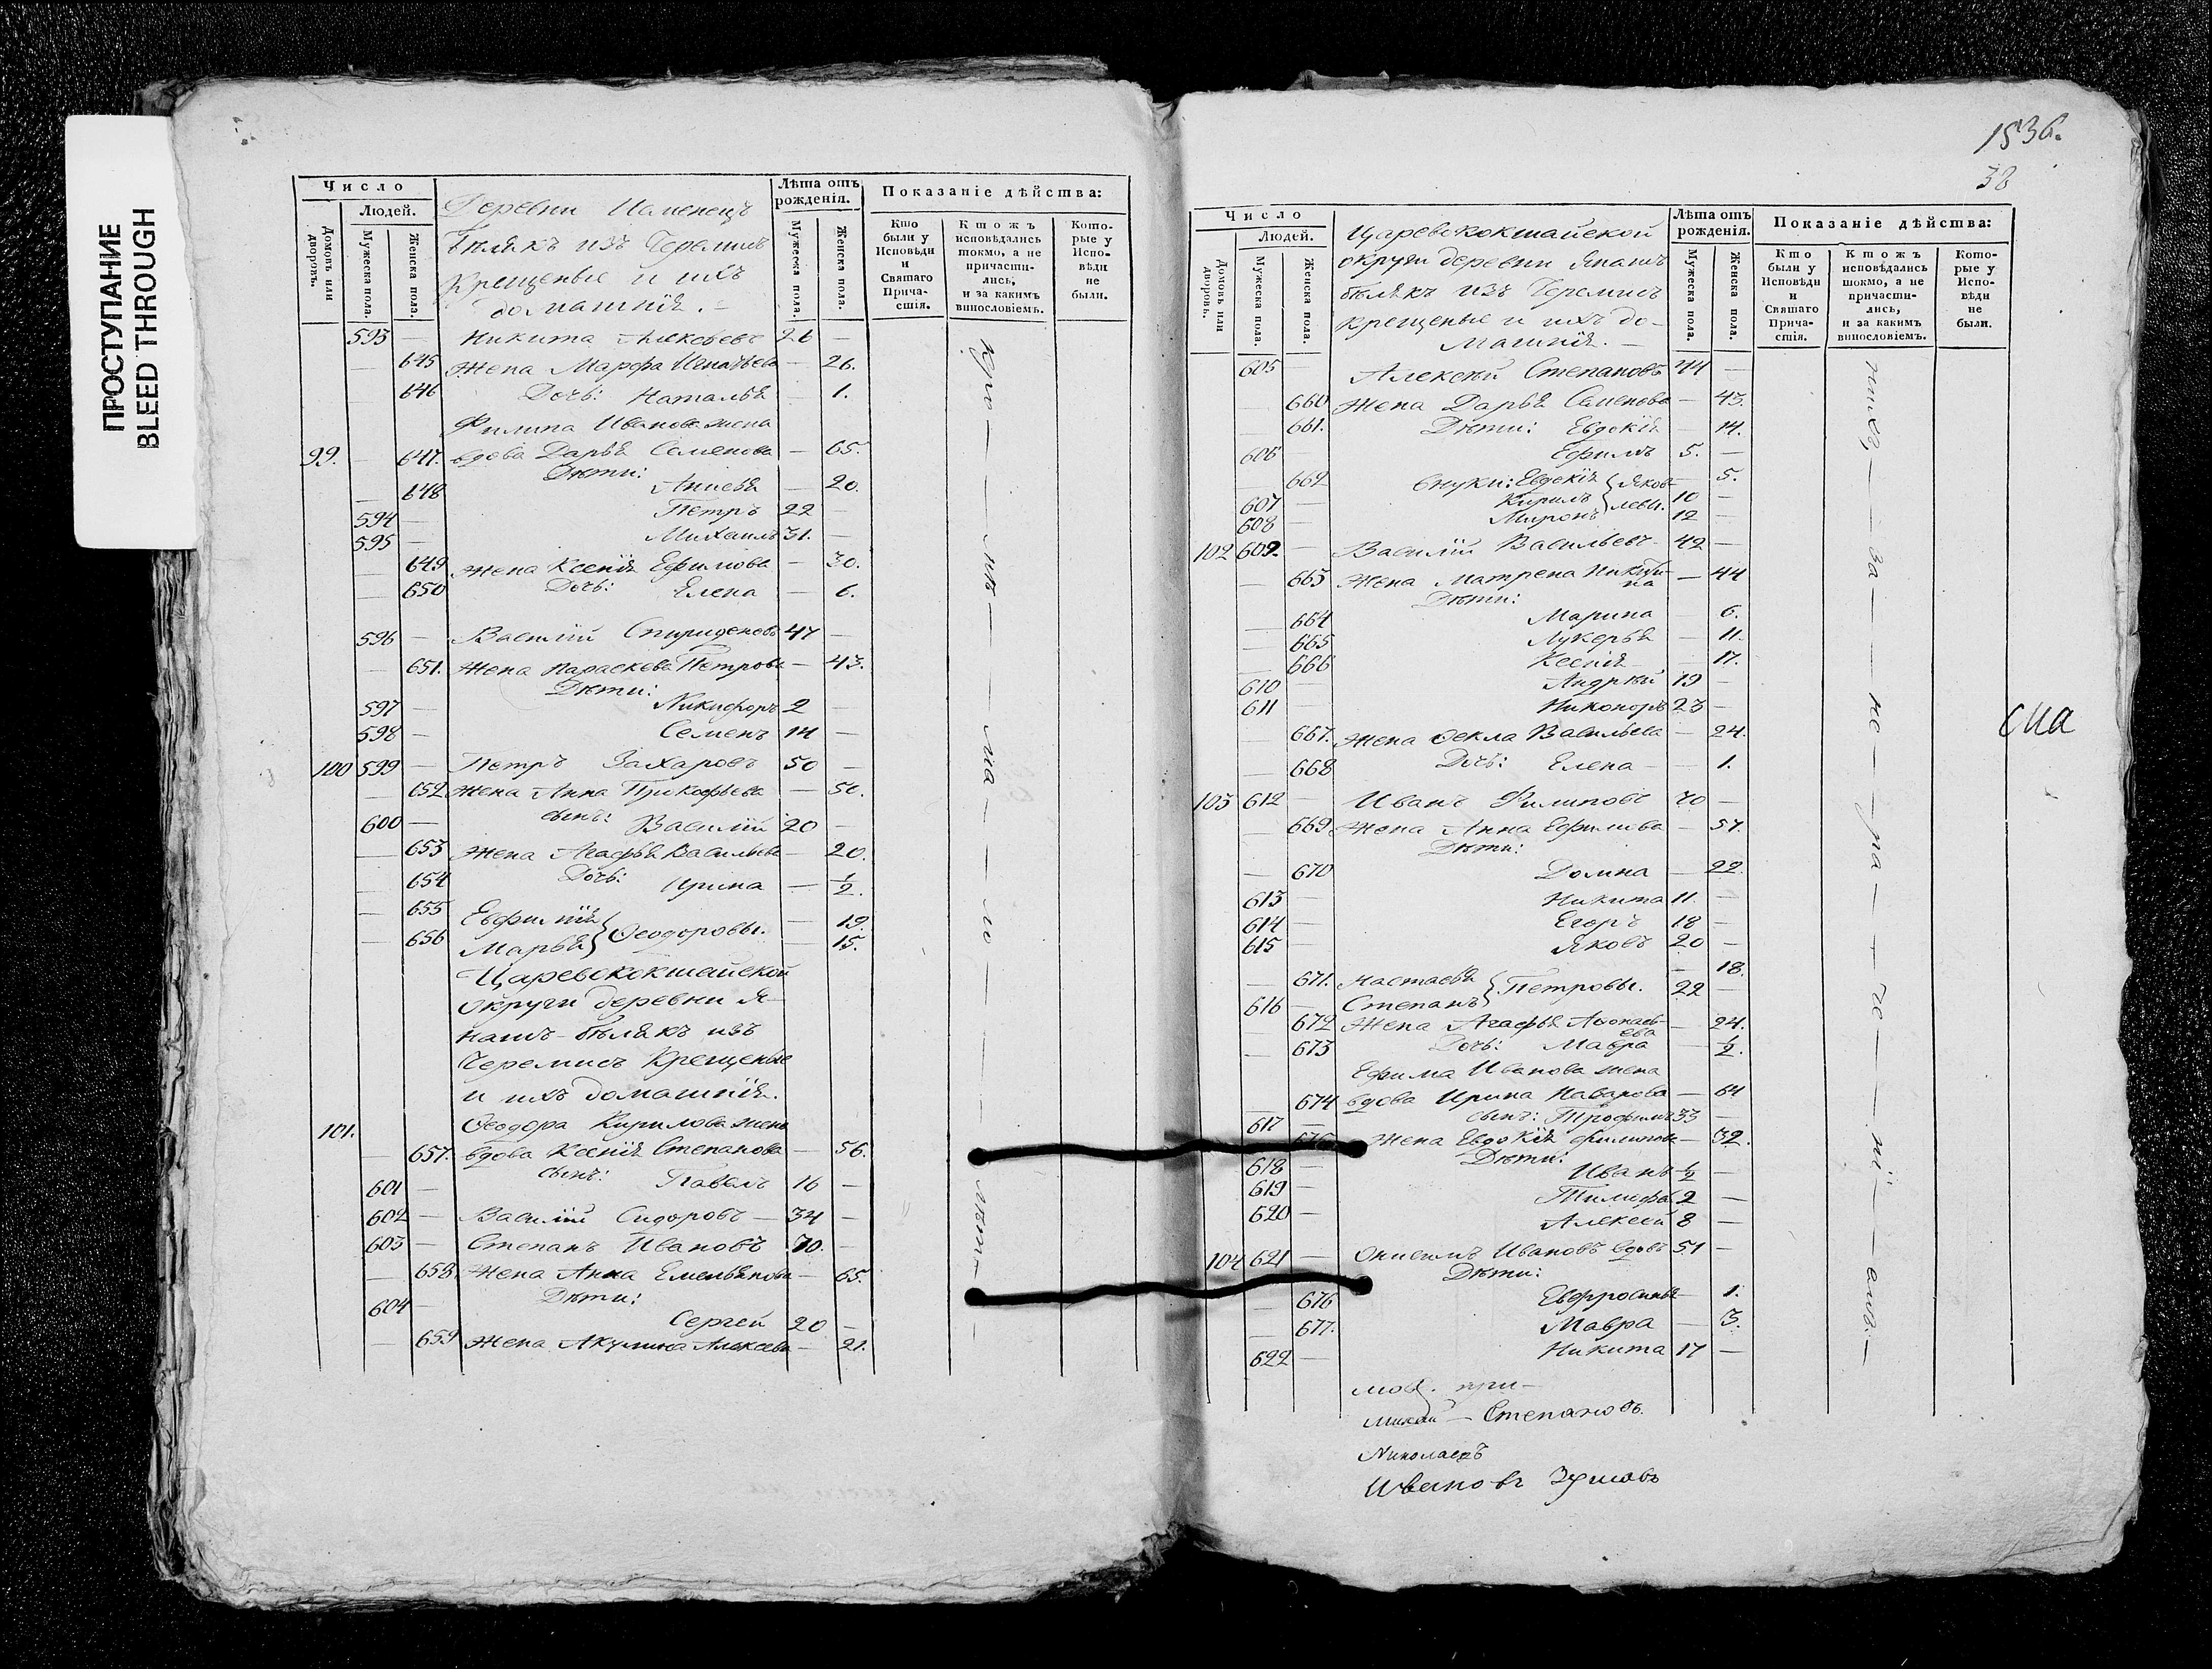 ПРОСТУПАНИЕ
BLEED THROUGH
Число
Людей.
Домовъ или дворовъ.
Мужеска пола.
Женска пола.
Деревни
бѣлякъ изъ Черемисъ
Крещеные и ихъ
домашнія.
Лѣта отъ рожденія.
Мужеска пола.
Женска пола.
Показаніе дѣйства:
Кто были у Исповѣди и Святаго Причастія.
Ктожъ исповѣдались токмо, а не причастились, и за какимъ винословіемъ.
Которые у Исповѣди не были.
593 — Никита Алексѣевъ 26 —
— 645 Жена Марфа Игнатьева — 26.
— 646 Дочь: Наталья — 1.
Филипа Иванова жена
99. — 647. вдова Дарья Семенова — 65.
Дѣти:
— 648 Анисья — 20.
594 — Петръ 22 —
595 — Михаилъ 31. —
— 649 Жена Ксенія Ефимова — 30.
— 650 Дочь: Елена — 6.
596 — Василій Спиридоновъ 47 —
— 651. Жена Параскева Петрова — 43.
Дѣти:
597 — Никифоръ 2 —
598 — Семенъ 14 —
100 599 — Петръ Захаровъ 50 —
— 652 Жена Анна Прокофьева — 50.
600 — сынъ: Василій 20 —
— 653 Жена Агафья Васильева — 20.
— 654 Дочь: Ирина — ½.
— 655 Евфимія — 19.
— 656 Марья } Ѳеодоровы. — 15.
Царевококшайской
округи деревни Я-
паш-бѣлякъ изъ
Черемисъ Крещеные
и ихъ домашнія.
101. Ѳеодора Кирилова жена
— 657. вдова Ксенія Степанова — 56.
601 — сынъ: Павелъ 16 —
602 — Василій Сидоровъ — 34 —
603 — Степанъ Ивановъ 70. —
— 658. Жена Анна Емельянова — 65.
Дѣти:
604 — Сергей 20 —
— 659 Жена Акулина Алексева — 21.
1836.
38
Число
Людей.
Домовъ или дворовъ.
Мужеска пола.
Женска пола.
Царевококшайской
округи деревни Япаш
бѣлякъ изъ Черемисъ
крещеные и ихъ до-
машнія. —
Лѣта отъ рожденія.
Мужеска пола.
Женска пола.
Показаніе дѣйства:
Кто были у Исповѣди и Святаго Причастія.
Ктожъ исповѣдались токмо, а не причастились, и за какимъ винословіемъ.
Которые у Исповѣди не были.
605 — Алексѣй Степановъ 44 —
— 660 Жена Дарья Семенова — 43.
— 661. Дѣти: Евдокія — 14.
606 — Ефимъ 5. —
— 662 внуки: Евдокія { Яков- — 5.
607 — Кирилъ } левы. 10 —
608 — Миронъ 12 —
102 609. — Василій Васильевъ 42 —
— 663 Жена Матрена Никити-
на — 44
Дѣти:
— 664 Марина — 6.
— 665 Лукерья — 11.
— 666 Ксенія — 17.
610 — Андрѣй 19 —
611 — Никоноръ 23 —
— 667. Жена Ѳекла Васильева — 24.
— 668 Дочь: Елена — 1.
103 612 — Иванъ Филиповъ 70 —
— 669 Жена Анна Ефимова — 57.
Дѣти:
— 670 Домна — 22.
613 — Никита 11. —
614 — Егоръ 18 —
615 — Яковъ 20 —
— 671. Настасья — 18.
616 — Степанъ } Петровы. 22 —
— 672 Жена Агафья — 24.
— 673 Дочь: Мавра — ½.
Ефима Иванова жена
— 674 вдова Ирина — 64
617 — сынъ: Трофимъ 33 —
Жена Евдокія Филипова — 32.
Дѣти:
618 — Иванъ ½ —
619 — 2 —
620 — Алексей 8 —
104 621 — Онисимъ Ивановъ вдовъ 51 —
Дѣти:
— 676 Евфросинья — 1.
— 677. Мавра — 3.
622 — Никита 17 —
при-
— Степановъ
Николаевъ
Ивановъ